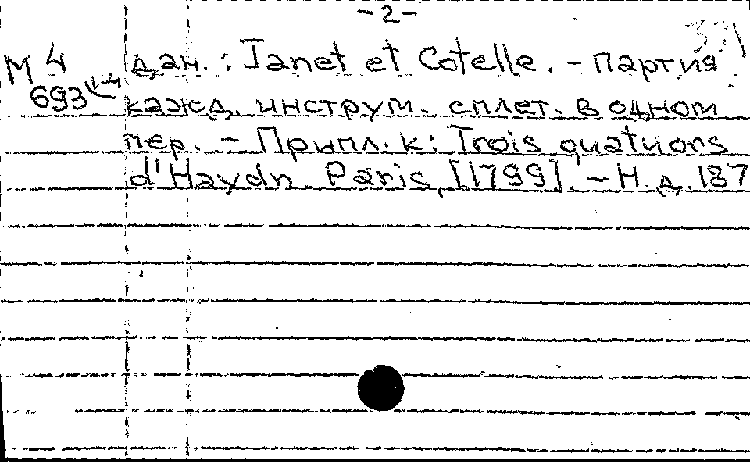 -2-
М 4 дан. : Janet et Cotelle. - партия
693 кажд. инструм. сплет. в одном
пер. - Припл. к: Trois quatuors
d'Haydn. Paris, [1799]. - Н.д. 187